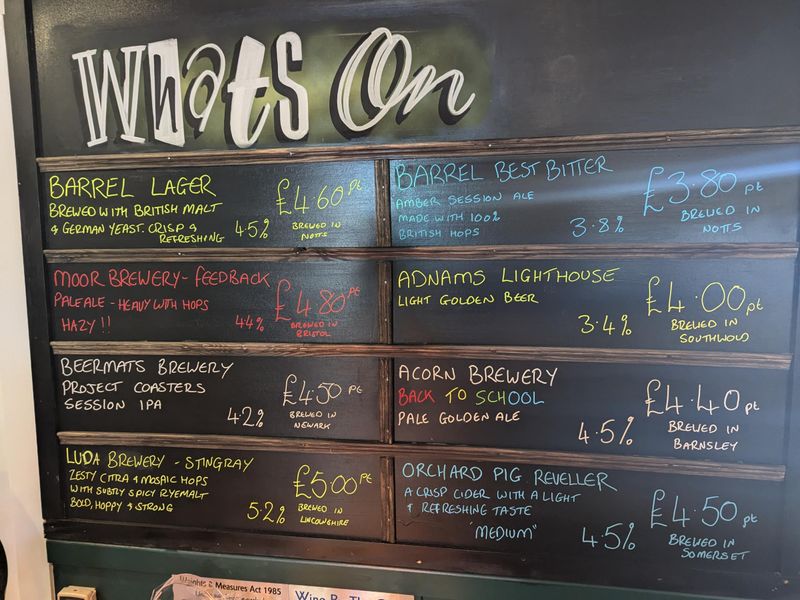 Whats On
BARREL LAGER
BREWED WITH BRITISH MALT
& GERMAN YEAST. CRISP &
REFRESHING 4.5%
£4.60 pt
BREWED IN
NOTTS
BARREL BEST BITTER
AMBER SESSION ALE
MADE WITH 100%
BRITISH HOPS 3.8%
£3.80 pt
BREWED IN
NOTTS
MOOR BREWERY - FEEDBACK
PALE ALE - HEAVY WITH HOPS
HAZY !! 4.4%
£4.80 pt
BREWED IN
BRISTOL
ADNAMS LIGHTHOUSE
LIGHT GOLDEN BEER
3.4%
£4.00 pt
BREWED IN
SOUTHWOLD
BEERMATS BREWERY
PROJECT COASTERS
SESSION IPA
4.2%
£4.50 pt
BREWED IN
NEWARK
ACORN BREWERY
BACK TO SCHOOL
PALE GOLDEN ALE
4.5%
£4.40 pt
BREWED IN
BARNSLEY
LUDA BREWERY - STINGRAY
ZESTY CITRA & MOSAIC HOPS
WITH SUBTLY SPICY RYE MALT
BOLD, HOPPY & STRONG 5.2%
£5.00 pt
BREWED IN
LINCOLNSHIRE
ORCHARD PIG REVELLER
A CRISP CIDER WITH A LIGHT
& REFRESHING TASTE
"MEDIUM" 4.5%
£4.50 pt
BREWED IN
SOMERSET
Weights & Measures Act 1985